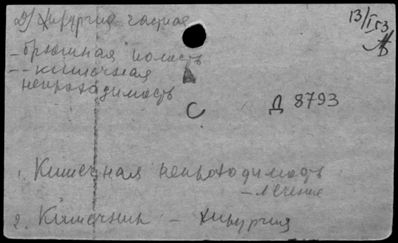 2) Хирургия частная
13/I 53
- брюшная полость
-- кишечная
непроходимость
С
Д 8793
1. Кишечная непроходимость
- лечение
2. Кишечник - хирургия